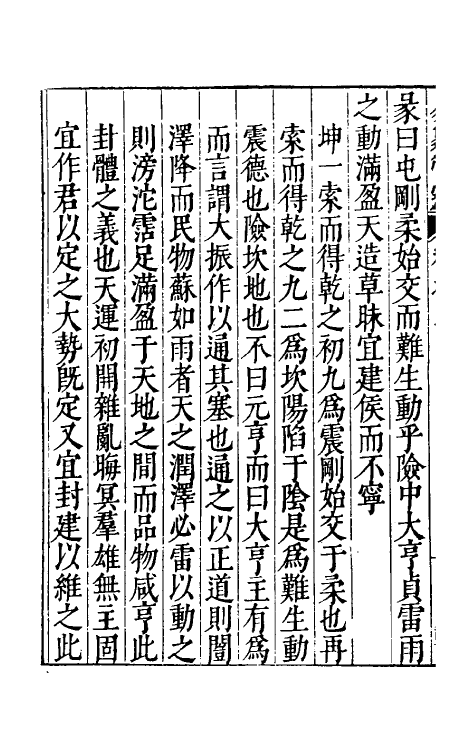 彖曰屯剛柔始交而難生動乎險中大亨貞雷雨
之動滿盈天造草昧宜建侯而不寧
坤一索而得乾之初九爲震剛始交于柔也再
索而得乾之九二爲坎陽陷于陰是爲難生動
震德也險坎地也不曰元亨而曰大亨主有爲
而言謂大振作以通其塞也通之以正道則闓
澤降而民物蘇如雨者天之潤澤必雷以動之
則滂沱霑足滿盈于天地之間而品物咸亨此
封體之義也天運初開雜亂晦冥羣雄無主固
宜作君以定之大勢旣定又宜封建以維之此